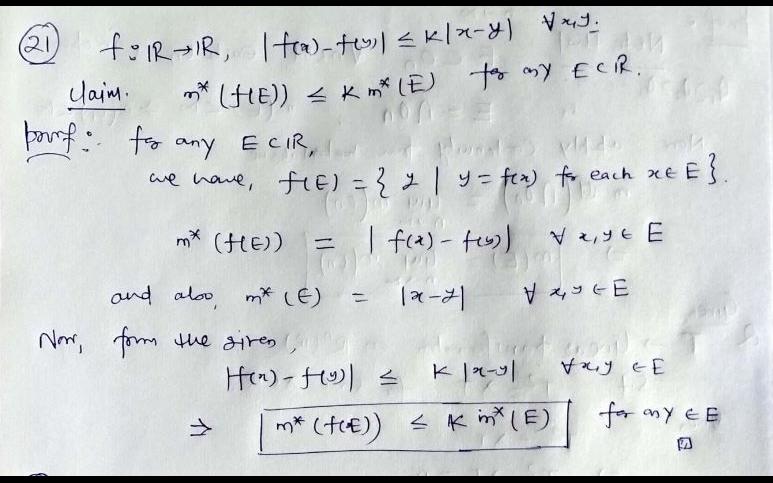 (21) f: ℝ→ℝ, |f(x)-f(y)| ≤ K|x-y| ∀ x,y.
Claim. m* (f(E)) ≤ K m* (E) for any E⊂ℝ.
proof: for any E⊂ℝ,
we have, f(E) = { y | y = f(x) for each x∈E }.
m* (f(E)) = |f(x) - f(y)| ∀ x,y ∈ E
and also, m* (E) = |x-y| ∀ x,y ∈ E
Now, from the given,
|f(x) - f(y)| ≤ K |x-y| ∀ x,y ∈ E
⇒ m* (f(E)) ≤ K m* (E) for any ∈ E